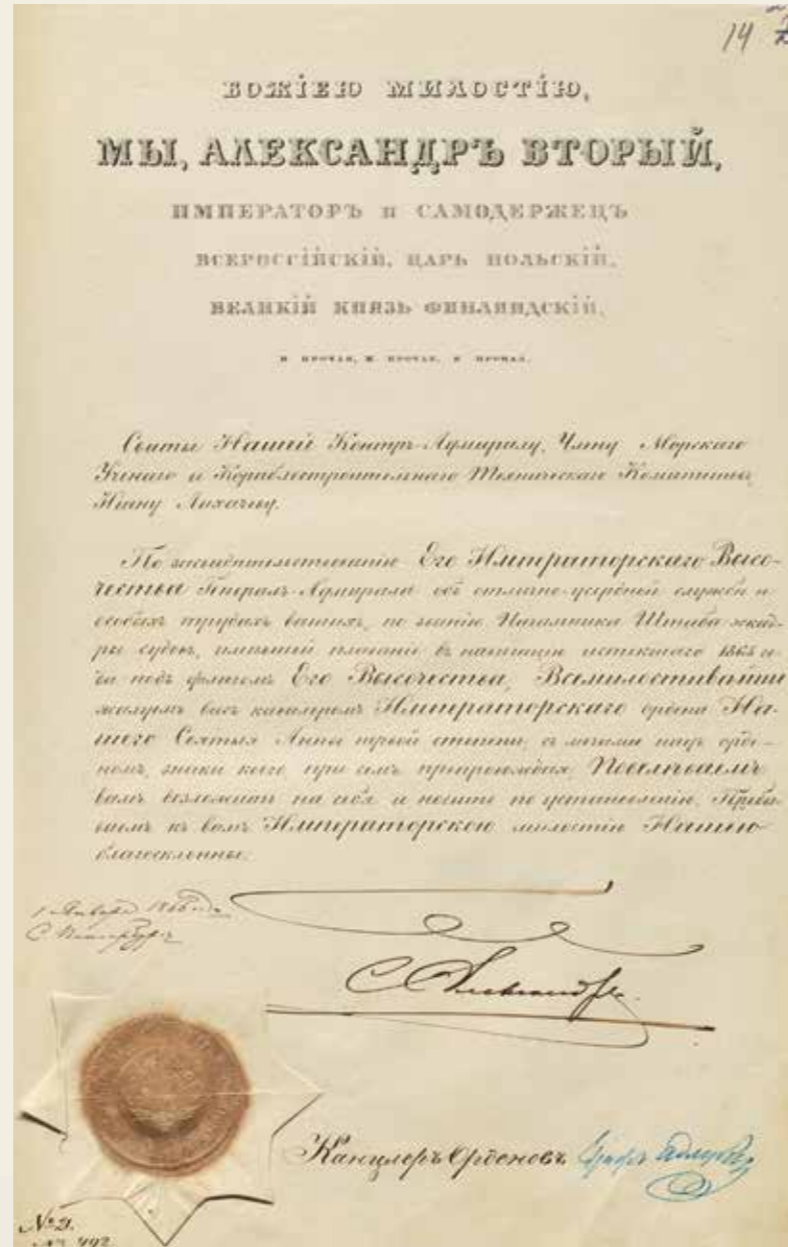 14
БОЖІЕЮ МИЛОСТІЮ,
МЫ, АЛЕКСАНДРЪ ВТОРЫЙ,
ИМПЕРАТОРЪ и САМОДЕРЖЕЦЪ
ВСЕРОССІЙСКІЙ, ЦАРЬ ПОЛЬСКІЙ,
ВЕЛИКІЙ КНЯЗЬ ФИНЛЯНДСКІЙ,
И ПРОЧАЯ, И ПРОЧАЯ, И ПРОЧАЯ.
Свиты Нашей Контръ-Адмиралу, Члену Морскаго
Ученаго и Кораблестроительнаго Техническаго Комитета,
Ивану Лихачеву.
По засвидѣтельствованію Его Императорскаго Высо-
чества Генералъ-Адмирала объ отлично-усердной службѣ и
особыхъ трудахъ вашихъ, по званію Начальника Штаба эскад-
ры судовъ, имѣвшей плаваніе въ навигацію истекшаго 1865 го-
да подъ флагомъ Его Высочества, Всемилостивѣйше
жалуемъ васъ кавалеромъ Императорскаго ордена На-
шего Святыя Анны первой степени, съ мечами надъ орде-
номъ, знаки коего при семъ препровождая, Повелѣваемъ
вамъ возложить на себя и носить по установленію. Пребы-
ваемъ къ вамъ Императорскою милостію Нашею
благосклонны.
1 Января 1866 года
С. Петербургъ
Александръ
Канцлеръ Орденовъ Графъ
№ 21.
№ 492